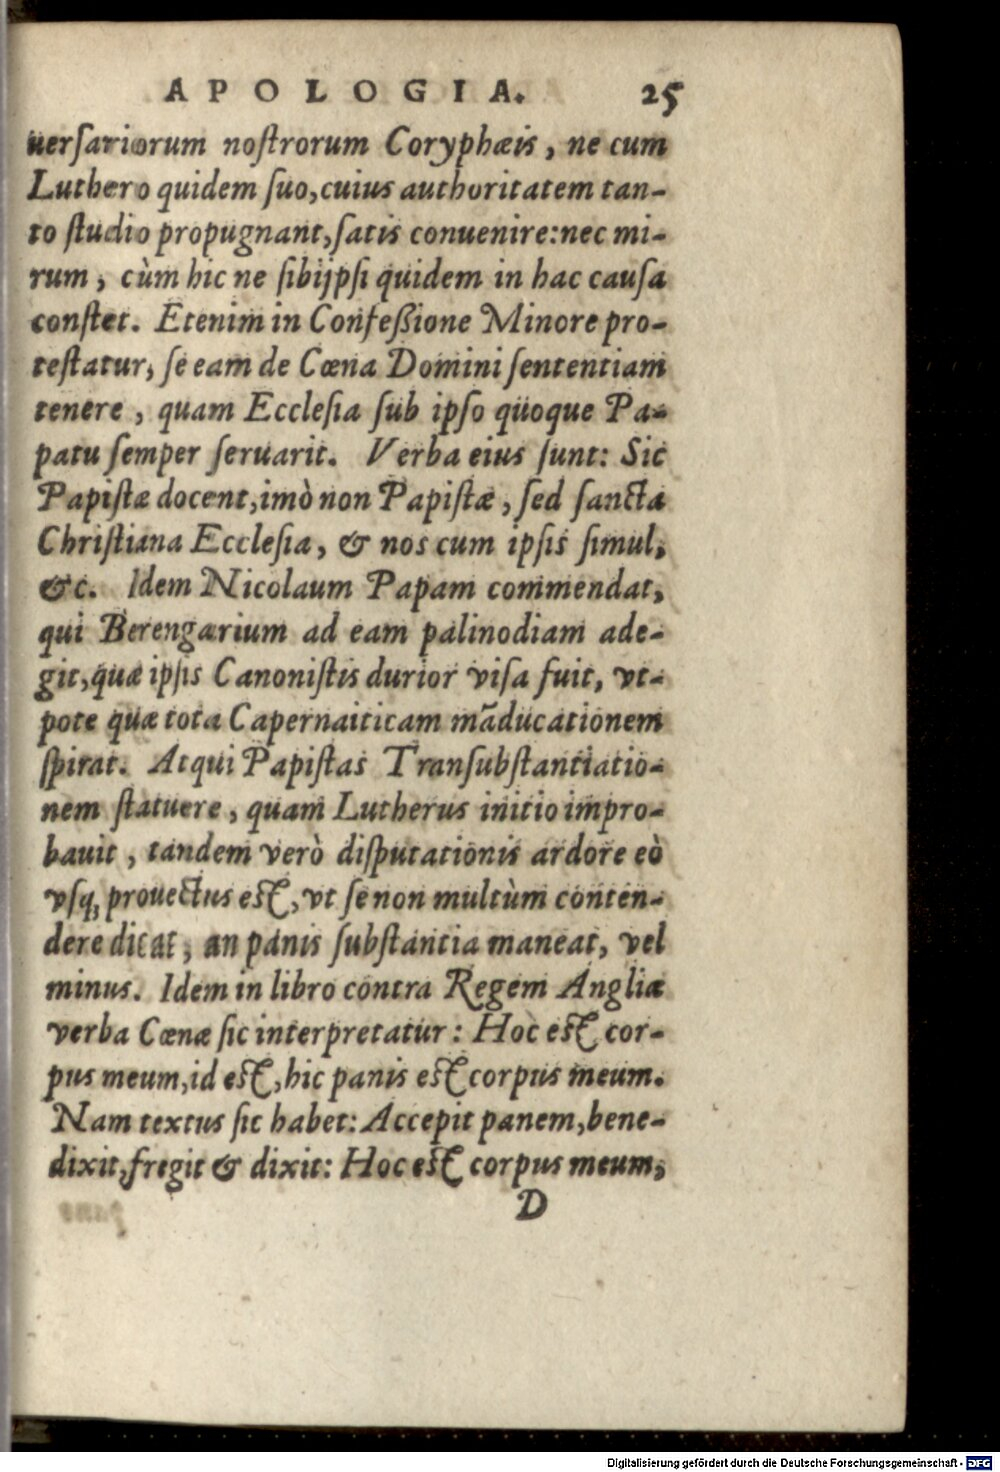 APOLOGIA. 25
uersariorum nostrorum Coryphæis, ne cum
Luthero quidem suo, cuius authoritatem tan-
to studio propugnant, satis conuenire: nec mi-
rum, cùm hic ne sibijpsi quidem in hac causa
constet. Etenim in Confeßione Minore pro-
testatur, se eam de Cœna Domini sententiam
tenere, quam Ecclesia sub ipso quoque Pa-
patu semper seruarit. Verba eius sunt: Sic
Papistæ docent, imò non Papistæ, sed sancta
Christiana Ecclesia, & nos cum ipsis simul,
&c. Idem Nicolaum Papam commendat,
qui Berengarium ad eam palinodiam ade-
git, quæ ipsis Canonistis durior visa fuit, vt-
pote quæ tota Capernaiticam mãducationem
spirat. Atqui Papistas Transubstantiatio-
nem statuere, quam Lutherus initio impro-
bauit, tandem verò disputationis ardore eò
vsq; prouectus est, vt se non multùm conten-
dere dicat, an panis substantia maneat, vel
minus. Idem in libro contra Regem Angliæ
verba Cœnæ sic interpretatur: Hoc est cor-
pus meum, id est, hic panis est corpus meum.
Nam textus sic habet: Accepit panem, bene-
dixit, fregit & dixit: Hoc est corpus meum,
D
Digitalisierung gefördert durch die Deutsche Forschungsgemeinschaft - DFG